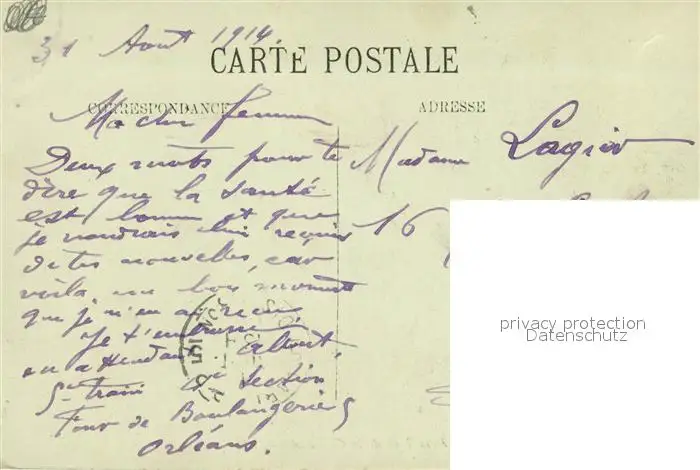 31 Aout 1914
CARTE POSTALE
CORRESPONDANCE
ADRESSE
Ma cher femme
Deux mots pour te
dire que la santé
est bonne et que
je voudrais bien reçevoir
de tes nouvelles, car
voila un bon moment
que je n'en ai reçu.
Je t'embrasse
en attendant Albert.
train section
Four de Boulangerie 5
Orléans.
Madame
16
privacy protection
Datenschutz